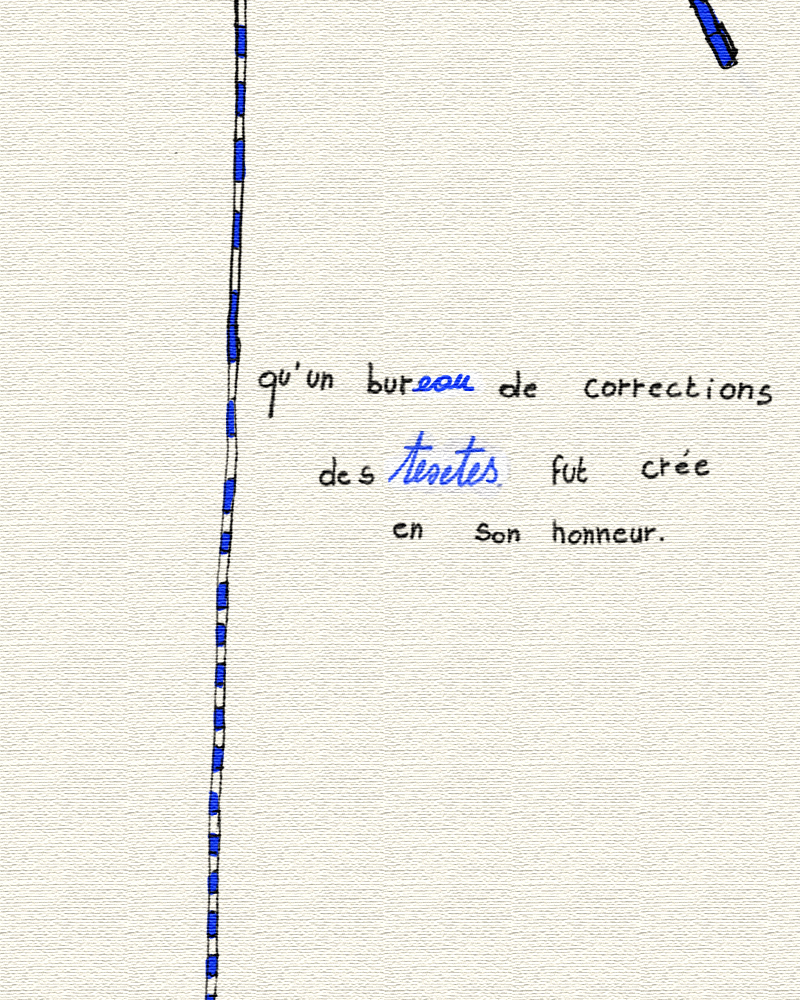 qu'un bureau de corrections
des textes fut crée
en son honneur.